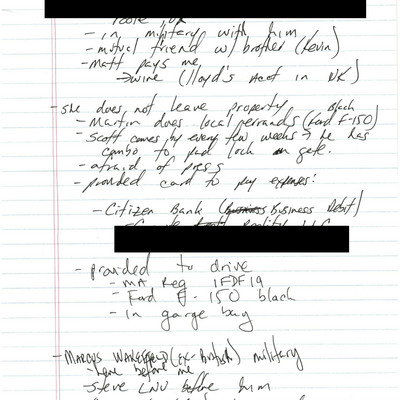 - in military with him
- mutual friend w/ brother (Kevin)
- Matt pays me
→ wire (Lloyd's acct in UK)
- she does not leave property
Black
- Martin does local errands (Ford F-150)
- Scott comes by every few weeks? he has
combo to pad lock on gate.
- afraid of press
- provided card to pay expenses!
- Citizen Bank (Business Debit)
- provided to drive
- MA Reg 1FDF19
- Ford F-150 black
- in garge bay
- Marcus (ex-British) military
- here before me
- Steve LNU before him